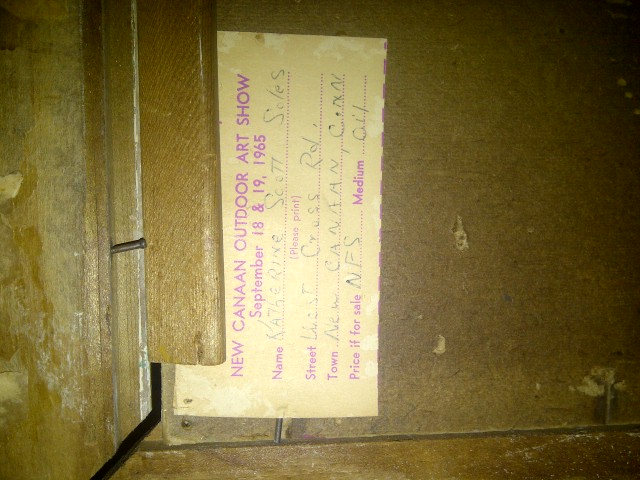 NEW CANAAN OUTDOOR ART SHOW
September 18 & 19, 1965
Name KATHERINE Scott Soles
(Please print)
Street West Cross Rd.
Town New CANAAN, CONN
Price if for sale NFS Medium Oil